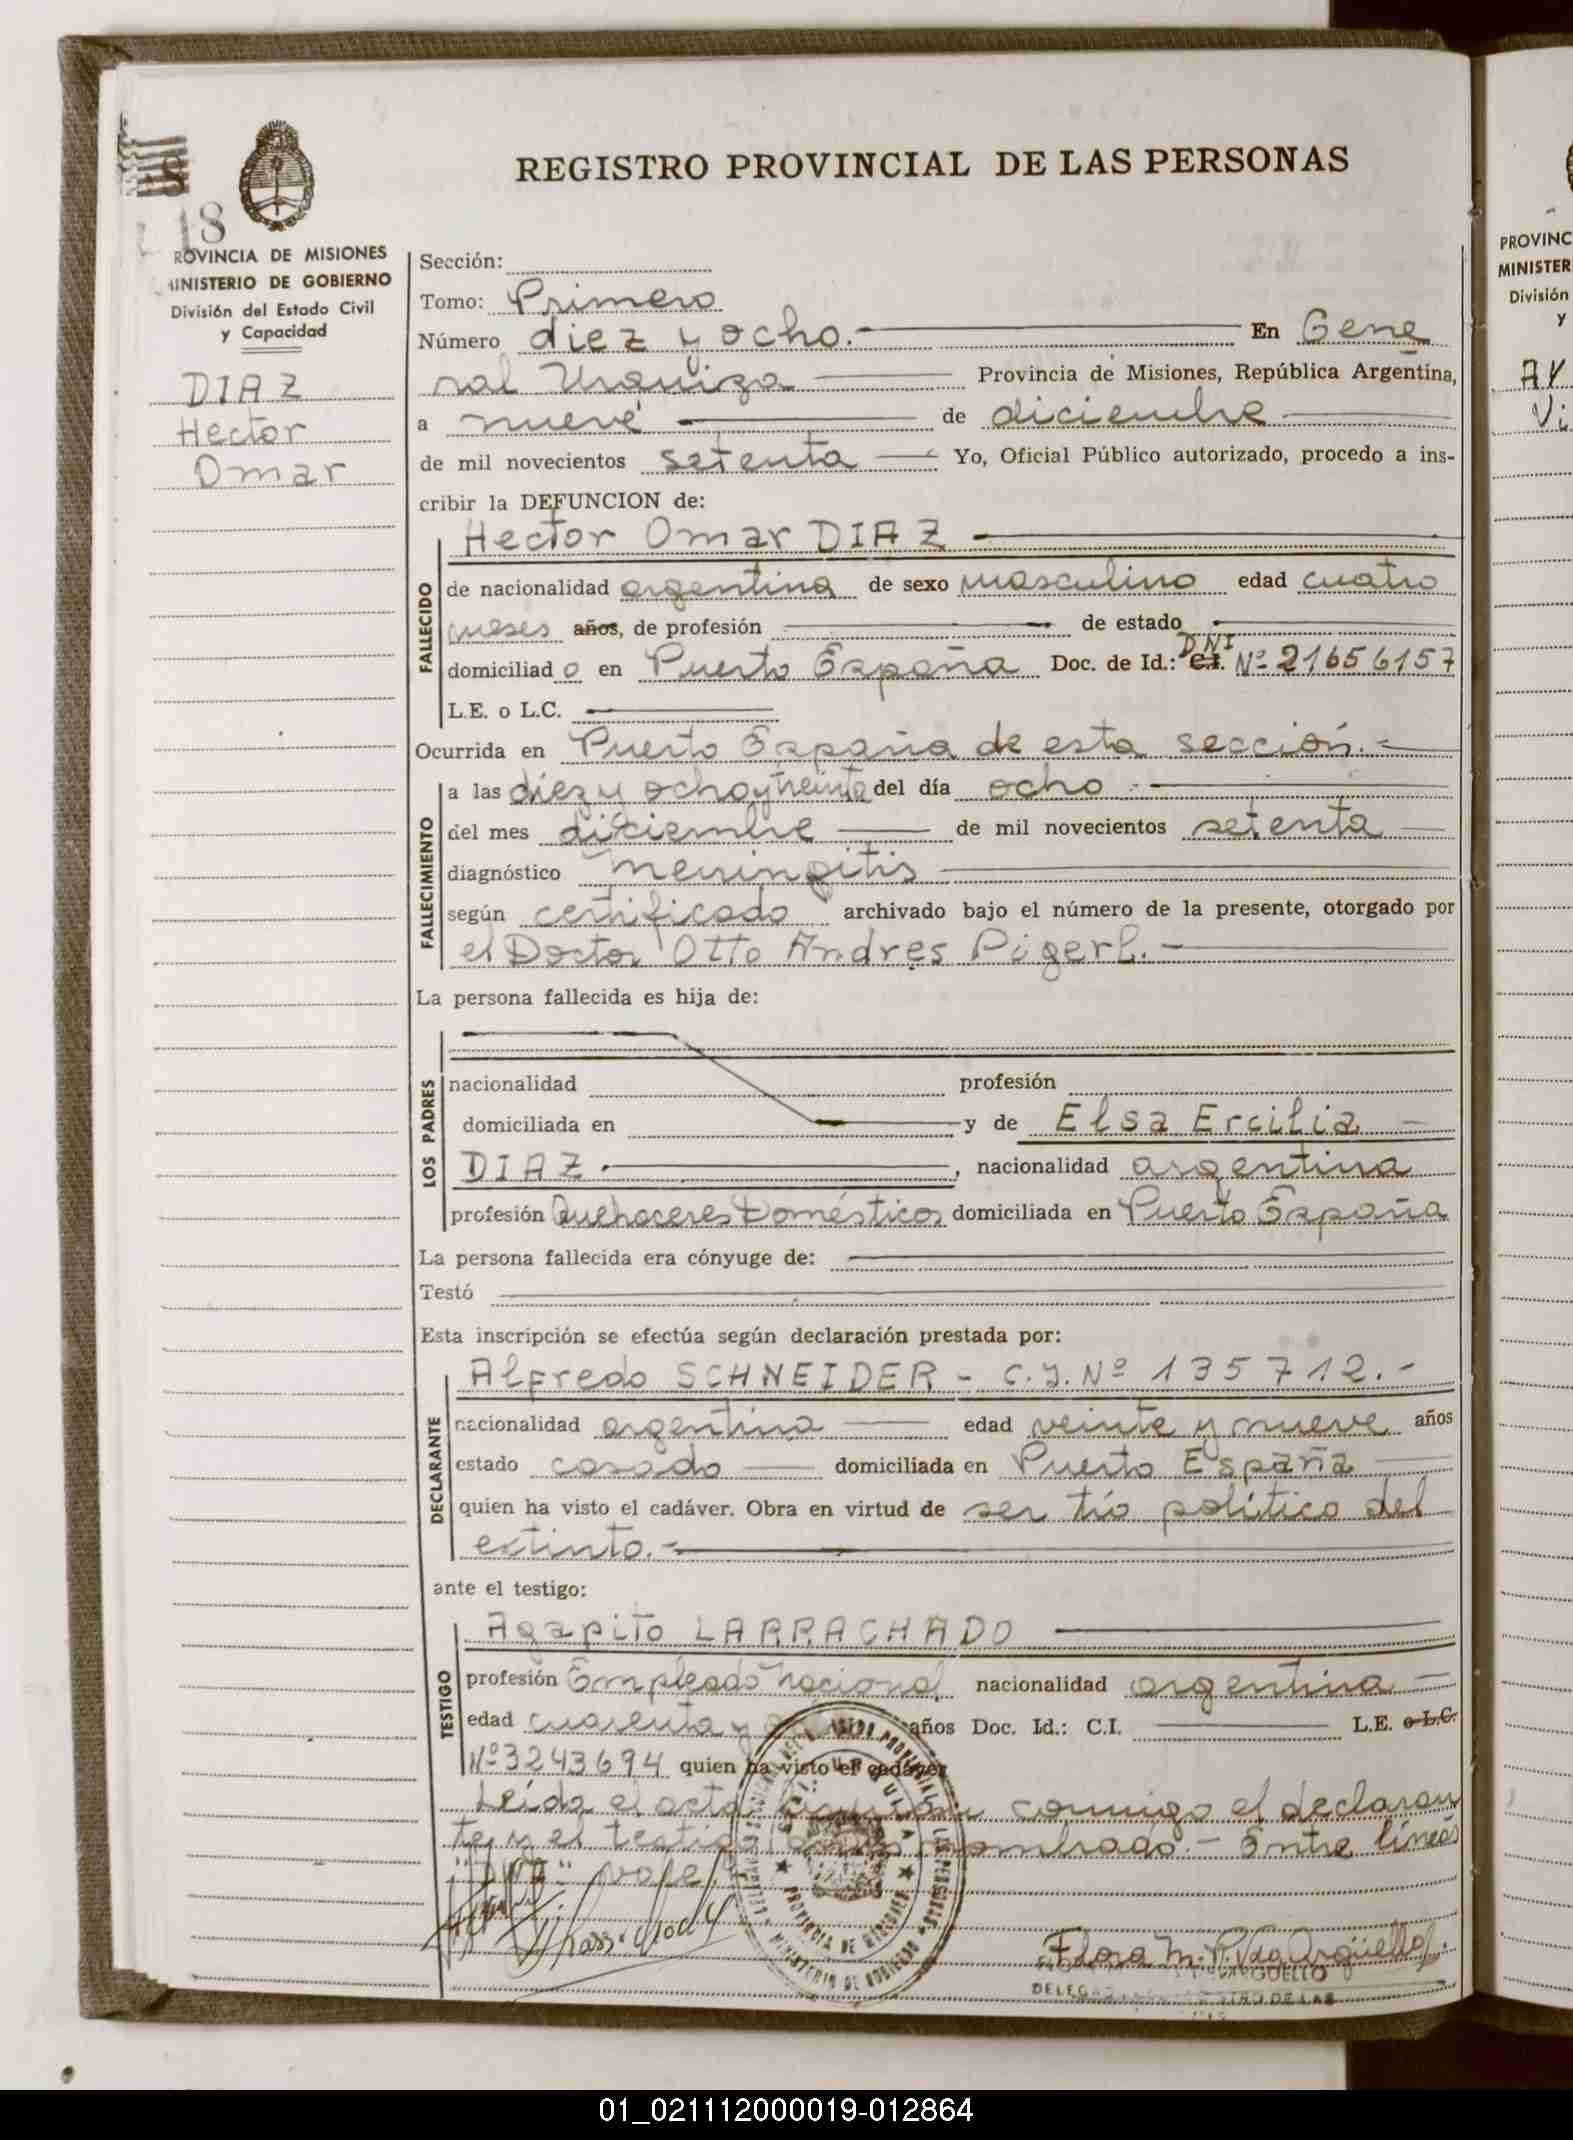 REGISTRO PROVINCIAL DE LAS PERSONAS
18
PROVINCIA DE MISIONES
MINISTERIO DE GOBIERNO
División del Estado Civil
y Capacidad
DIAZ
Hector
Omar
Sección:
Tomo: Primero
Número diez y ocho. En Gene
ral Urquiza Provincia de Misiones, República Argentina,
a nueve de diciembre
de mil novecientos setenta Yo, Oficial Público autorizado, procedo a ins-
cribir la DEFUNCION de:
Hector Omar DIAZ
FALLECIDO
de nacionalidad argentina de sexo masculino edad cuatro
meses años, de profesión de estado
domiciliado en Puerto España Doc. de Id.: DNI C.I. Nº 21656157
L.E. o L.C.
Ocurrida en Puerto España de esta sección.-
FALLECIMIENTO
a las diez y ocho y treinta del día ocho
del mes diciembre de mil novecientos setenta
diagnóstico meningitis
según certificado archivado bajo el número de la presente, otorgado por
el Doctor Otto Andres Pigerl.-
La persona fallecida es hija de:
LOS PADRES
nacionalidad profesión
domiciliada en y de Elsa Ercilia
DIAZ, nacionalidad argentina
profesión Quehaceres Domésticos domiciliada en Puerto España
La persona fallecida era cónyuge de:
Testó
Esta inscripción se efectúa según declaración prestada por:
DECLARANTE
Alfredo SCHNEIDER - C.I. Nº 135712.-
nacionalidad argentina edad veinte y nueve años
estado casado domiciliada en Puerto España
quien ha visto el cadáver. Obra en virtud de ser tío político del
extinto.-
ante el testigo:
TESTIGO
Agapito LARRACHADO
profesión Empleado nacional nacionalidad argentina
edad cuarenta y años Doc. Id.: C.I. L.E. o L.C.
Nº 3243694 quien ha visto el cadáver
Leída el acta conmigo el declaran
te y el testigo nombrado.- Entre líneas
"DNI" vale
PROVINCIA DE MISIONES
MINISTERIO DE GOBIERNO
Flora M. Argüello
ARGUELLO
PROVINC
MINISTER
División
y
01_021112000019-012864